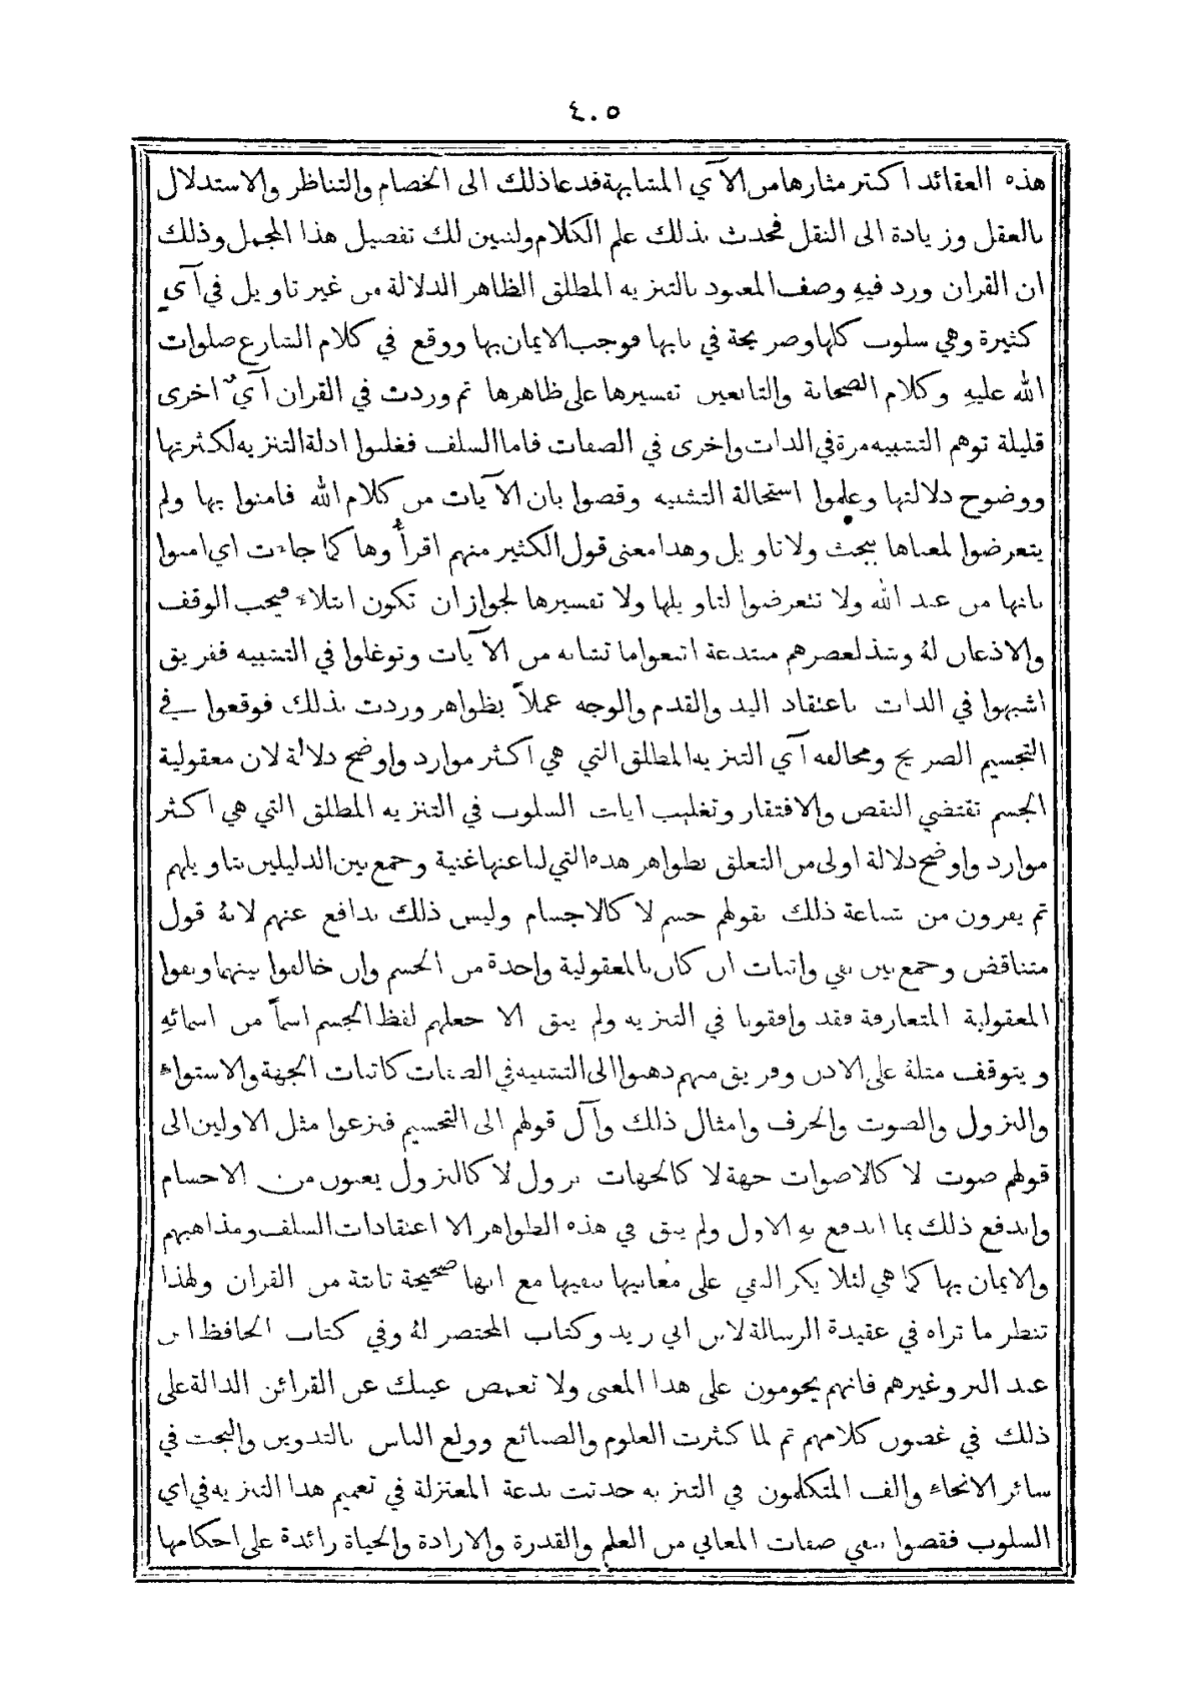 ٤٠٥
هذه العقائد اكثر مثارها من الآي المتشابهة فدعا ذلك الى الخصام والتناظر والاستدلال
بالعقل وزيادة الى النقل فحدث بذلك علم الكلام ولنبين لك تفصيل هذا المجمل وذلك
ان القران ورد فيهِ وصف المعبود بالتنزيه المطلق الظاهر الدلالة من غير تاويل في آيٍ
كثيرة وهي سلوب كلها وصريحة في بابها فوجب الايمان بها ووقع في كلام الشارع صلوات
الله عليهِ وكلام الصحابة والتابعين تفسيرها على ظاهرها ثم وردت في القران آيٌ اخرى
قليلة توهم التشبيه مرة في الذات واخرى في الصفات فاما السلف فغلبوا ادلة التنزيه لكثرتها
ووضوح دلالتها وعلموا استحالة التشبيه وقضوا بان الآيات من كلام الله فامنوا بها ولم
يتعرضوا لمعناها ببحث ولا تاويل وهذا معنى قول الكثير منهم اقرأُوها كما جاءت اي امنوا
بانها من عند الله ولا تتعرضوا لتاويلها ولا تفسيرها لجواز ان تكون ابتلاء فيجب الوقف
والاذعان لهُ وشذ لعصرهم مبتدعة اتبعوا ما تشابه من الآيات وتوغلوا في التشبيه ففريق
اشبهوا في الذات باعتقاد اليد والقدم والوجه عملاً بظواهر وردت بذلك فوقعوا في
التجسيم الصريح ومخالفة آي التنزيه المطلق التي هي اكثر موارد واوضح دلالة لان معقولية
الجسم تقتضي النقص والافتقار وتغليب ايات السلوب في التنزيه المطلق التي هي اكثر
موارد واوضح دلالة اولى من التعلق بظواهر هذه التي لنا عنها غنية وجمع بين الدليلين بتاويلهم
ثم يفرون من شناعة ذلك بقولهم جسم لا كالاجسام وليس ذلك بدافع عنهم لانهُ قول
متناقض وجمع بين نفي واثبات ان كان بالمعقولية واحدة من الجسم وان خالفوا بينهما ونفوا
المعقولية المتعارفة فقد وافقونا في التنزيه ولم يبق الا جعلهم لفظ الجسم اسماً من اسمائهِ
ويتوقف مثلهُ على الاذن وفريق منهم ذهبوا الى التشبيه في الصفات كاثبات الجهة والاستواء
والنزول والصوت والحرف وامثال ذلك وآل قولهم الى التجسيم فنزعوا مثل الاولين الى
قولهم صوت لا كالاصوات جهة لا كالجهات نزول لا كالنزول يعنون من الاجسام
واندفع ذلك بما اندفع بهِ الاول ولم يبق في هذه الظواهر الا اعتقادات السلف ومذاهبهم
والايمان بها كما هي لئلا يكر النفي على معانيها بنفيها مع انها صحيحة ثابتة من القران ولهذا
تنظر ما تراه في عقيدة الرسالة لابن ابي زيد وكتاب المختصر لهُ وفي كتاب الحافظ ابن
عبد البر وغيرهم فانهم يحومون على هذا المعنى ولا تغمض عينك عن القرائن الدالة على
ذلك في غضون كلامهم ثم لما كثرت العلوم والصنائع وولع الناس بالتدوين والبحث في
سائر الانحاء والف المتكلمون في التنزيه حدثت بدعة المعتزلة في تعميم هذا التنزيه في اي
السلوب فقضوا بنفي صفات المعاني من العلم والقدرة والارادة والحياة زائدة على احكامها